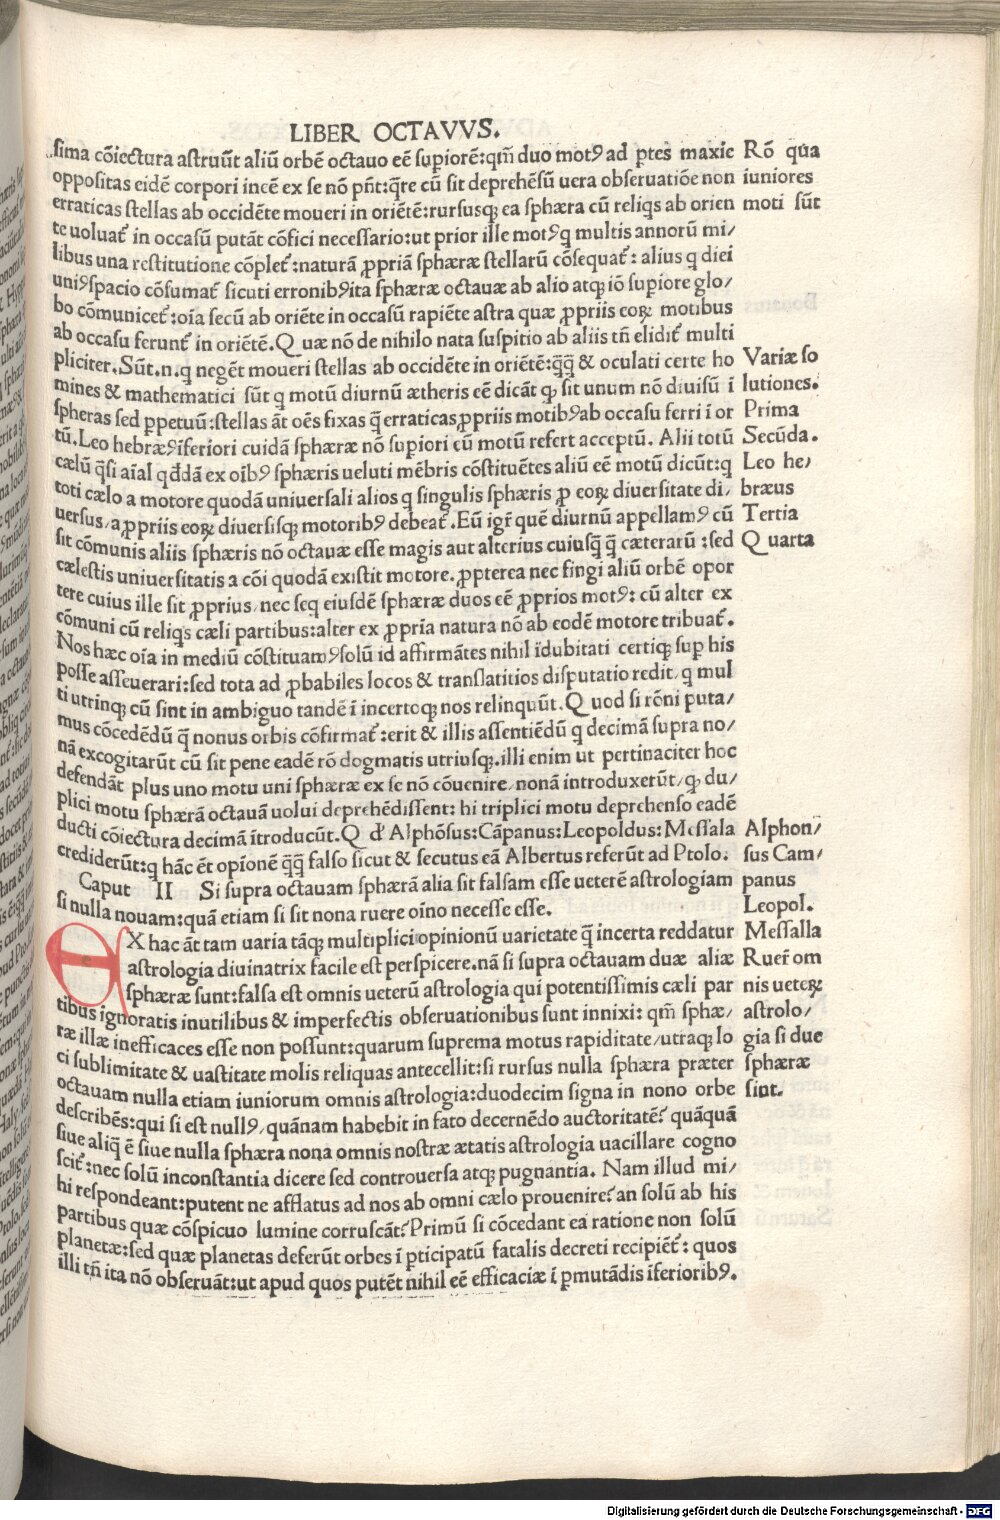 LIBER OCTAVVS.
sima cõiectura astruũt aliũ orbẽ octauo eẽ supiorẽ:qm̃ duo motꝰ ad ptes maxie
oppositas eidẽ corpori incẽ ex se nõ pñt:q̃re cũ sit deprehẽsũ uera obseruatiõe non
erraticas stellas ab occidẽte moueri in oriẽtẽ:rursusqꝫ ea sphæra cũ reliqs ab orien
te uoluat᷑ in occasũ putãt cõfici necessario:ut prior ille motꝰ q multis annorũ mi/
libus una restitutione cõplet᷑:naturã ꝓpriã sphæræ stellarũ cõsequat᷑: alius q diei
uniꝰ spacio cõsumat᷑ sicuti erronibꝰ ita sphæræ octauæ ab alio atqꝫ iõ supiore glo/
bo cõmunicet᷑:oĩa secũ ab oriẽte in occasũ rapiẽte astra quæ ꝓpriis eoꝝ motibus
ab occasu ferunt᷑ in oriẽtẽ.Q uæ nõ de nihilo nata suspitio ab aliis tñ elidit᷑ multi
pliciter.Sũt.n.q negẽt moueri stellas ab occidẽte in oriẽtẽ:q̃q̃ & oculati certe ho
mines & mathematici sũt q motũ diurnũ ætheris eẽ dicãt qꝫ sit unum nõ diuisũ ĩ
spheras sed ppetuũ:stellas ãt oẽs fixas q̃ erraticas ꝓpriis motibꝰ ab occasu ferri ĩ or
tũ.Leo hebræꝰ ĩferiori cuidã sphæræ nõ supiori cũ motũ refert acceptũ. Alii totũ
cælũ q̃si aĩal qddã ex oĩbꝰ sphæris ueluti mẽbris cõstituẽtes aliũ eẽ motũ dicũt:q
toti cælo a motore quodã uniuersali alios q singulis sphæris ꝓ eoꝝ diuersitate di/
uersus/a ꝓpriis eoꝝ diuersisqꝫ motoribꝰ debeat᷑.Eũ igr̃ quẽ diurnũ appellamꝰ cũ
sit cõmunis aliis sphæris nõ octauæ esse magis aut alterius cuiusq̃ q̃ cæterarũ :sed
cælestis uniuersitatis a cõi quodã existit motore.ꝓpterea nec fingi aliũ orbẽ opor
tere cuius ille sit ꝓprius/nec seq eiusdẽ sphæræ duos eẽ ꝓprios motꝰ: cũ alter ex
cõmuni cũ reliqs cæli partibus:alter ex ꝓpria natura nõ ab eodẽ motore tribuat᷑.
Nos hæc oĩa in mediũ cõstituamꝰ solũ id affirmãtes nihil ĩdubitati certiqꝫ sup his
posse asseuerari:sed tota ad ꝓbabiles locos & translatitios disputatio redit/ q mul
ti utrinqꝫ cũ sint in ambiguo tandẽ ĩ incertoqꝫ nos relinquũt.Q uod si rõni puta/
mus cõcedẽdũ q̃ nonus orbis cõfirmat᷑ :erit & illis assentiẽdũ q decimã supra no/
nã excogitarũt cũ sit pene eadẽ rõ dogmatis utriusqꝫ.illi enim ut pertinaciter hoc
defendãt plus uno motu uni sphæræ ex se nõ cõuenire/nonã introduxerũt/qꝫ du/
plici motu sphærã octauã uolui deprehẽdissent: hi triplici motu deprehenso eadẽ
ducti cõiectura decimã ĩtroducũt.Q d᷑ Alphõsus:Cãpanus:Leopoldus:Messala
crediderũt:q hãc ẽt opĩonẽ q̃q̃ falso sicut & secutus eã Albertus referũt ad Ptolo.
Caput II Si supra octauam sphærã alia sit falsam esse ueterẽ astrologiam
si nulla nouam:quã etiam si sit nona ruere oĩno necesse esse.
EX hac ãt tam uaria tãqꝫ multiplici opinionũ uarietate q̃ incerta reddatur
astrologia diuinatrix facile est perspicere.nã si supra octauam duæ aliæ
sphæræ sunt:falsa est omnis ueterũ astrologia qui potentissimis cæli par
tibus ignoratis inutilibus & imperfectis obseruationibus sunt innixi: qm̃ sphæ/
ræ illæ inefficaces esse non possunt:quarum suprema motus rapiditate/utraqꝫ lo
ci sublimitate & uastitate molis reliquas antecellit:si rursus nulla sphæra præter
octauam nulla etiam iuniorum omnis astrologia:duodecim signa in nono orbe
describẽs:qui si est nullꝰ, quãnam habebit in fato decernẽdo auctoritatẽ? quãquã
siue aliq̃ ẽ siue nulla sphæra nona omnis nostræ ætatis astrologia uacillare cogno
scit᷑:nec solũ inconstantia dicere sed controuersa atqꝫ pugnantia. Nam illud mi/
hi respondeant:putent ne afflatus ad nos ab omni cælo prouenire? an solũ ab his
partibus quæ cõspicuo lumine corruscãt? Primũ si cõcedant ea ratione non solũ
planetæ:sed quæ planetas deferũt orbes ĩ pticipatũ fatalis decreti recipiẽt᷑: quos
illi tñ ita nõ obseruãt:ut apud quos putẽt nihil eẽ efficaciæ ĩ pmutãdis ĩferioribꝰ.
Rõ qua
iuniores
moti sũt
Variæ so
lutiones.
Prima
Secũda.
Leo he/
bræus
Tertia
Q uarta
Alphon/
sus Cam/
panus
Leopol.
Messalla
Ruer᷑ om
nis ueteꝝ
astrolo/
gia si due
sphæræ
sint.
Digitalisierung gefördert durch die Deutsche Forschungsgemeinschaft - DFG